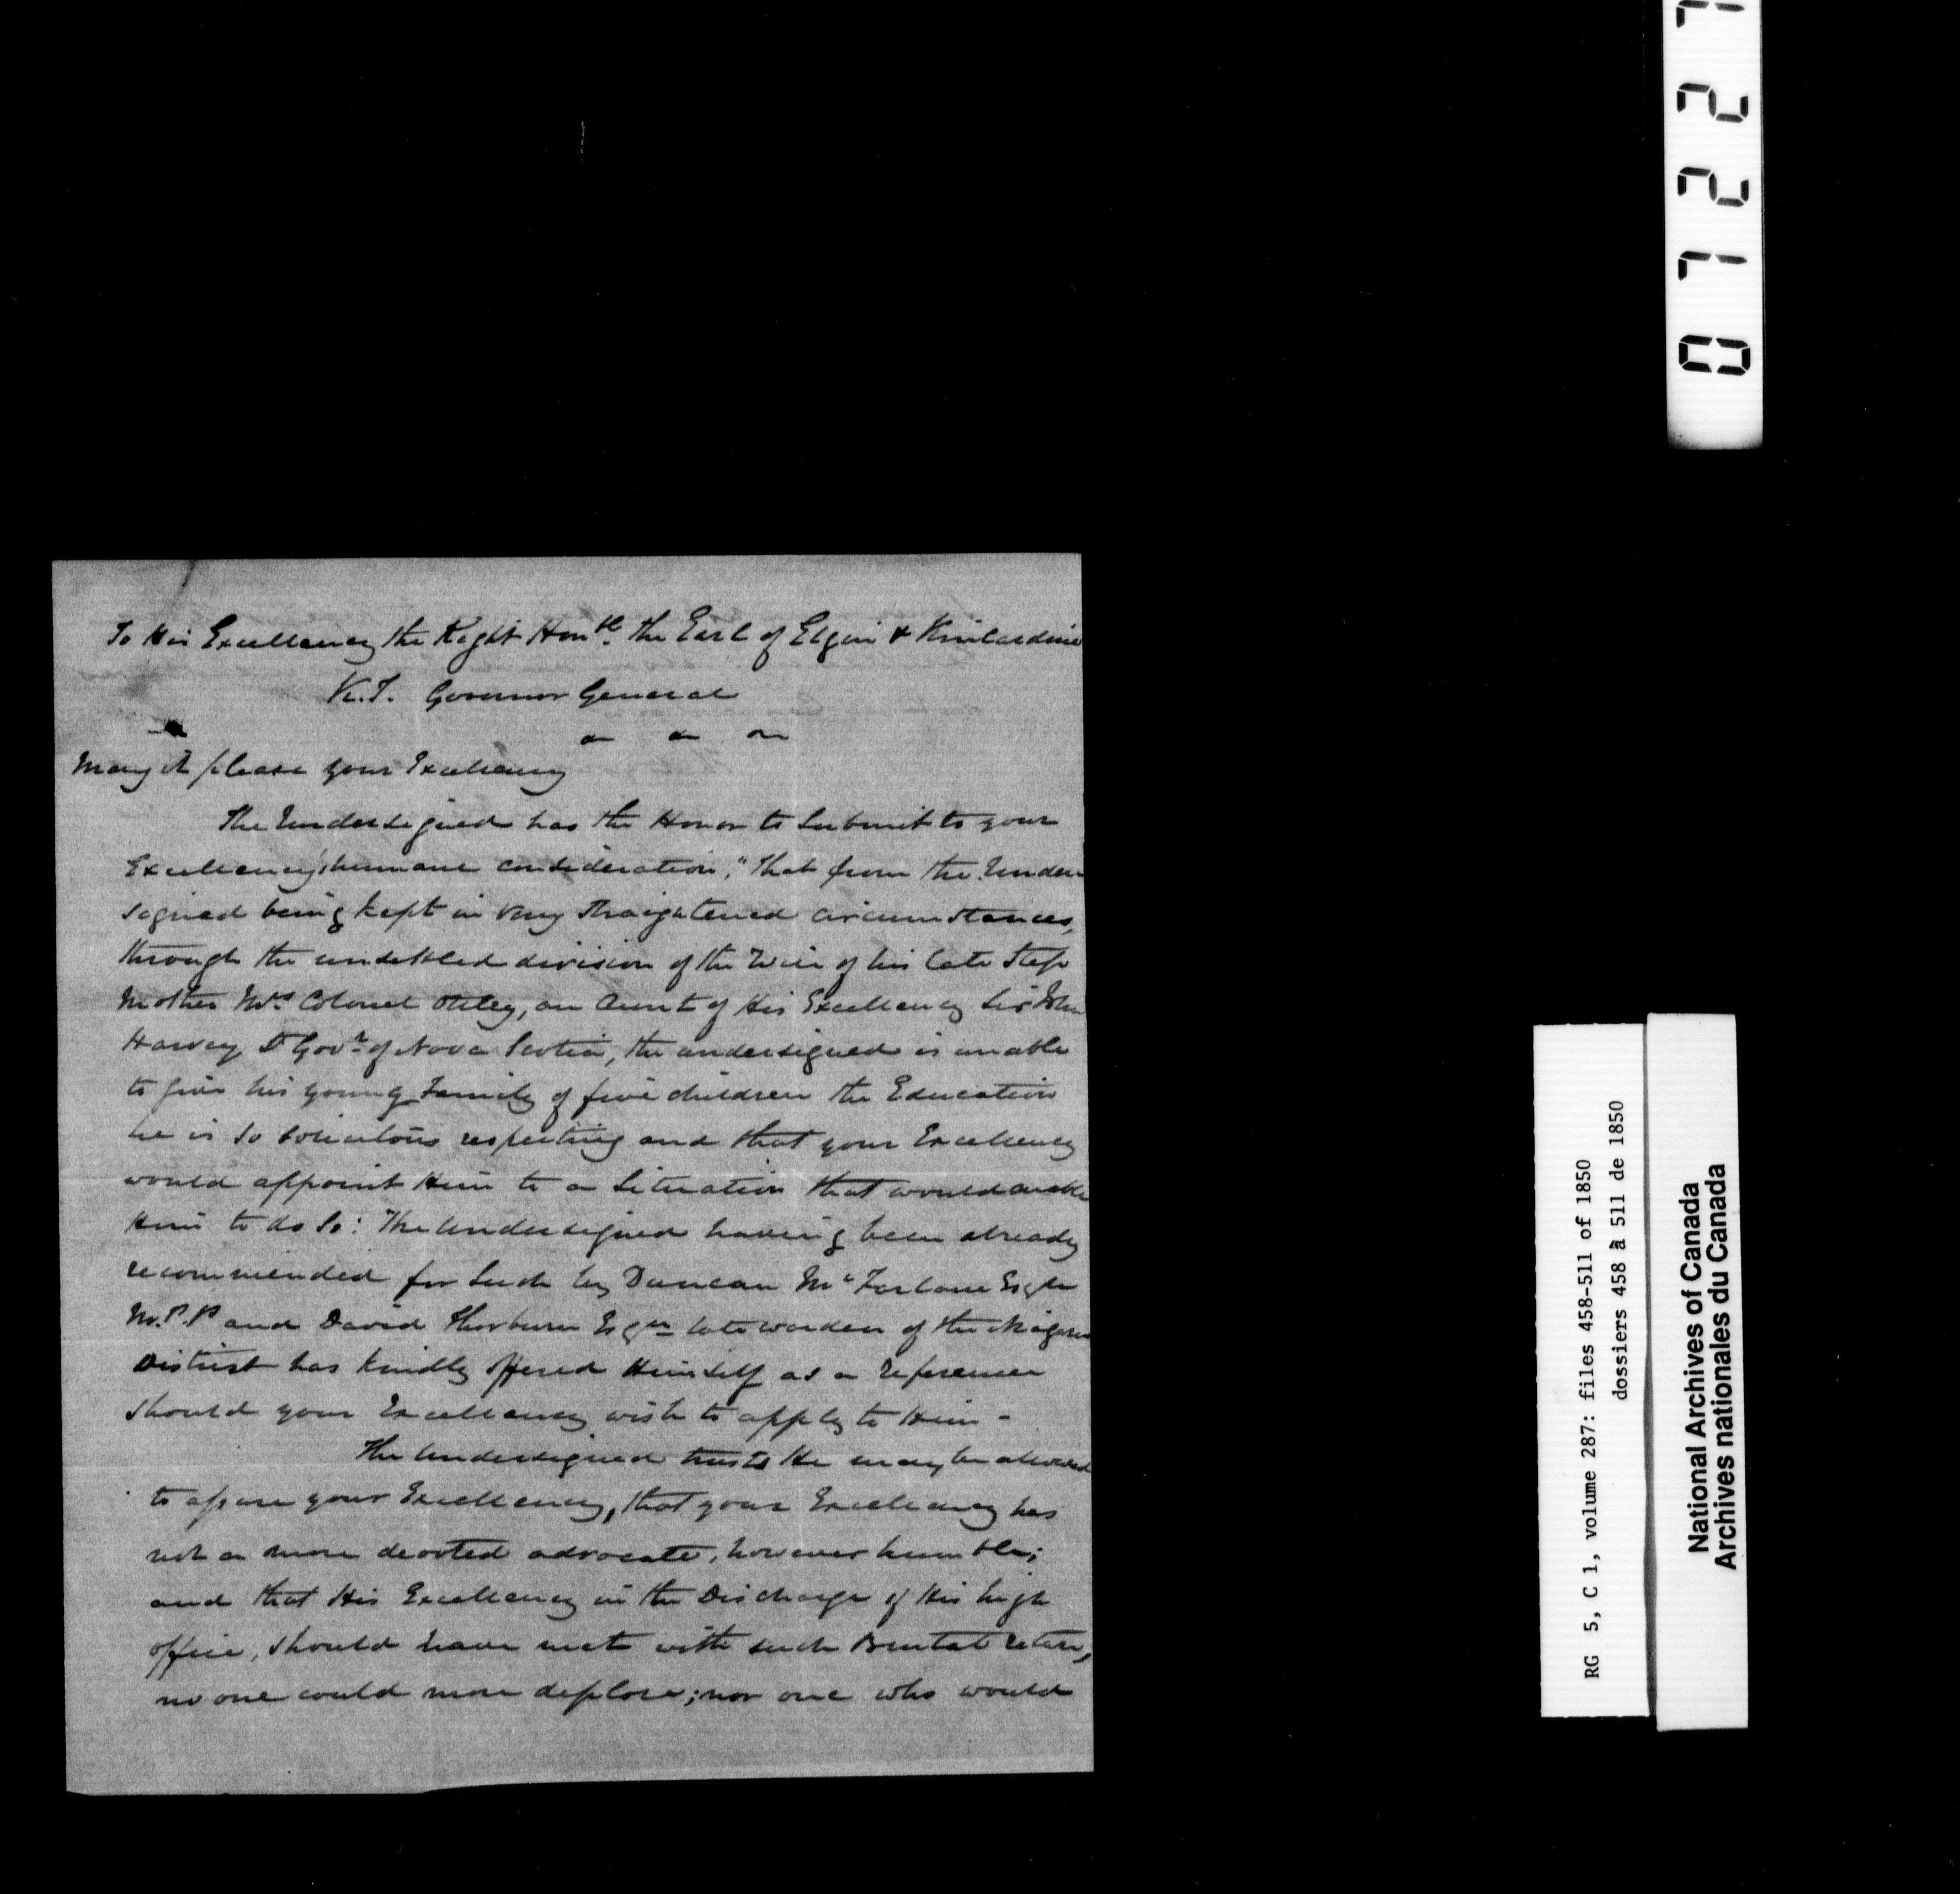 To His Excellency the Right Honble. the Earl of Elgin & Kincardine
K.T. Governor General
&c &c &c
May it please your Excellency
The Undersigned has the Honor to submit to your
Excellency's humane consideration, "that from the Under
signed being kept in very straightened circumstances,
through the unsettled division of the Will of his late Step
Mother Mrs. Colonel Ottley, an Aunt of His Excellency Sir John
Harvey Lt Govr. of Nova Scotia, the undersigned is unable
to give his young Family of five children the Education
he is so solicitous respecting and that your Excellency
would appoint Him to a situation that would enable
Him to do so: The Undersigned having been already
recommended for such by Duncan McFarlane Esqre
M.P.P and David Thorburn Esqre late warden of the Niagara
District has kindly offered Himself as a reference
should your Excellency wish to apply to Him -
The Undersigned trusts He may be allowed
to assure your Excellency, that your Excellency has
not a more devoted advocate, however humble;
and that His Excellency in the Discharge of His high
office, should have met with such Brutal return,
no one could more deplore; nor one who would
07227
RG 5, C 1, volume 287: files 458-511 of 1850
dossiers 458 à 511 de 1850
National Archives of Canada
Archives nationales du Canada